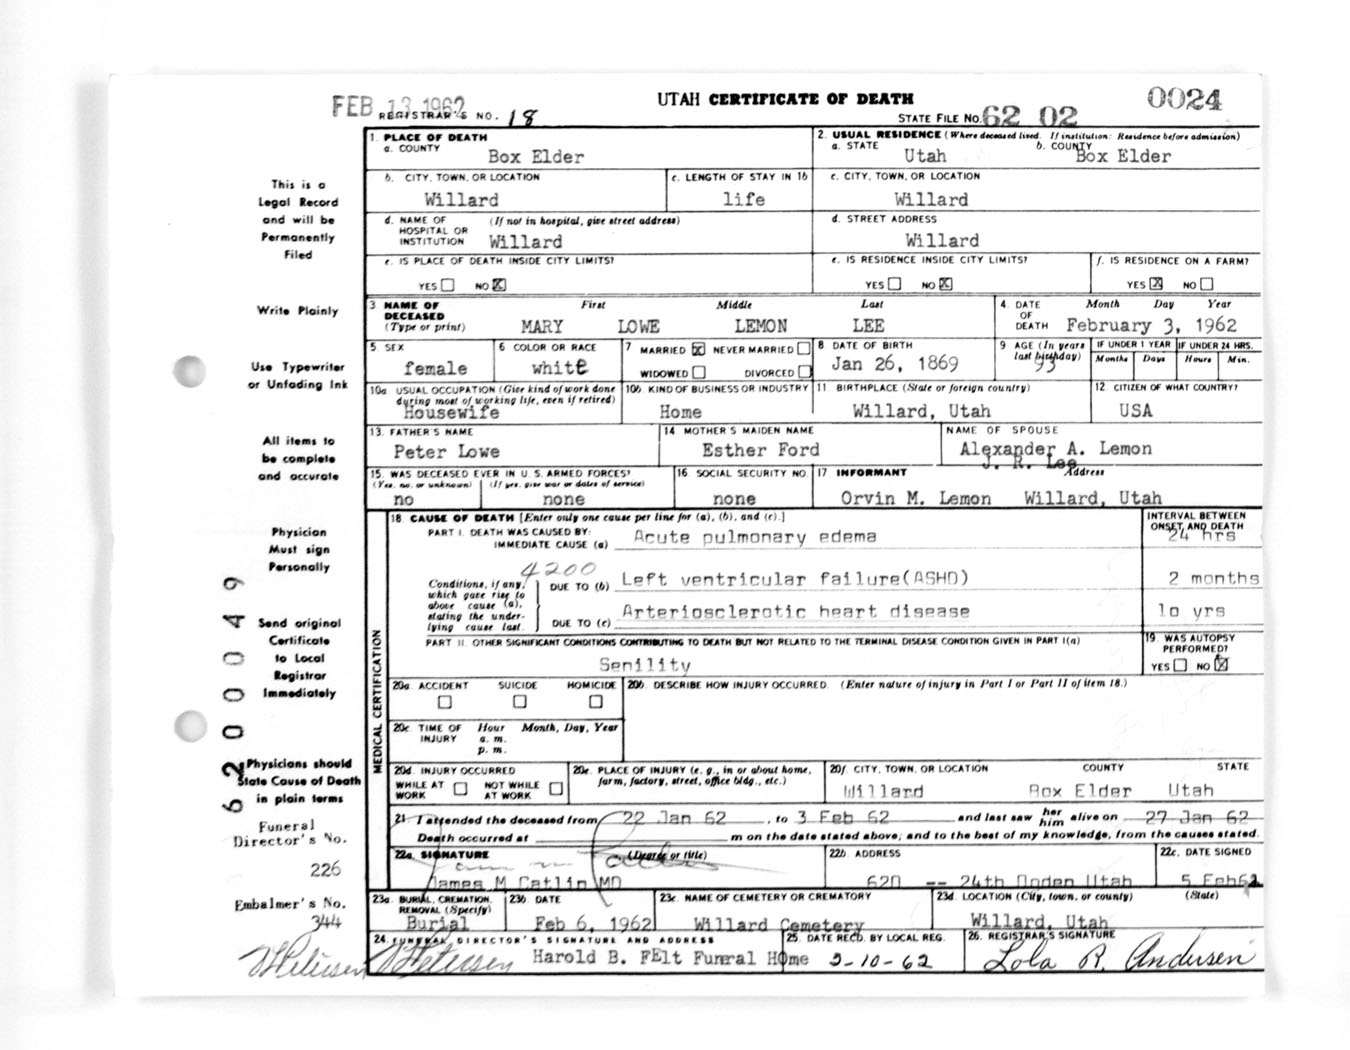 FEB 13 1962
UTAH CERTIFICATE OF DEATH
0024
REGISTRAR'S NO. 18
STATE FILE NO. 62 02
1. PLACE OF DEATH
a. COUNTY
Box Elder
2. USUAL RESIDENCE (Where deceased lived. If institution: Residence before admission)
a. STATE
Utah
b. COUNTY
Box Elder
This is a
Legal Record
and will be
Permanently
Filed
b. CITY, TOWN, OR LOCATION
Willard
c. LENGTH OF STAY IN 1b
life
c. CITY, TOWN, OR LOCATION
Willard
d. NAME OF HOSPITAL OR INSTITUTION
(If not in hospital, give street address)
Willard
d. STREET ADDRESS
Willard
e. IS PLACE OF DEATH INSIDE CITY LIMITS?
YES NO X
e. IS RESIDENCE INSIDE CITY LIMITS?
YES NO X
f. IS RESIDENCE ON A FARM?
YES X NO
Write Plainly
3 NAME OF DECEASED
(Type or print)
First Middle Last
MARY LOWE LEMON LEE
4. DATE OF DEATH
Month Day Year
February 3, 1962
Use Typewriter
or Unfading Ink
5 SEX
female
6 COLOR OR RACE
white
7 MARRIED X NEVER MARRIED
WIDOWED DIVORCED
8 DATE OF BIRTH
Jan 26, 1869
9 AGE (In years last birthday)
93
IF UNDER 1 YEAR
Months Days
IF UNDER 24 HRS.
Hours Min.
10a USUAL OCCUPATION (Give kind of work done
during most of working life, even if retired)
Housewife
10b KIND OF BUSINESS OR INDUSTRY
Home
11 BIRTHPLACE (State or foreign country)
Willard, Utah
12 CITIZEN OF WHAT COUNTRY?
USA
All items to
be complete
and accurate
13. FATHER'S NAME
Peter Lowe
14 MOTHER'S MAIDEN NAME
Esther Ford
NAME OF SPOUSE
Alexander A. Lemon
J. R. Lee
15. WAS DECEASED EVER IN U.S. ARMED FORCES?
(Yes, no, or unknown) (If yes, give war or dates of service)
no none
16 SOCIAL SECURITY NO.
none
17 INFORMANT Address
Orvin M. Lemon Willard, Utah
Physician
Must sign
Personally
MEDICAL CERTIFICATION
18 CAUSE OF DEATH [Enter only one cause per line for (a), (b), and (c).]
INTERVAL BETWEEN
ONSET AND DEATH
PART I. DEATH WAS CAUSED BY:
IMMEDIATE CAUSE (a) Acute pulmonary edema
24 hrs
4200
Conditions, if any,
which gave rise to
above cause (a),
stating the under-
lying cause last.
DUE TO (b) Left ventricular failure(ASHD)
2 months
DUE TO (c) Arteriosclerotic heart disease
10 yrs
Send original
Certificate
to Local
Registrar
Immediately
62 00049
PART II. OTHER SIGNIFICANT CONDITIONS CONTRIBUTING TO DEATH BUT NOT RELATED TO THE TERMINAL DISEASE CONDITION GIVEN IN PART I(a)
Senility
19. WAS AUTOPSY
PERFORMED?
YES NO X
20a. ACCIDENT SUICIDE HOMICIDE
20b. DESCRIBE HOW INJURY OCCURRED. (Enter nature of injury in Part I or Part II of item 18.)
20c. TIME OF INJURY
Hour Month, Day, Year
a. m.
p. m.
Physicians should
State Cause of Death
in plain terms
20d. INJURY OCCURRED
WHILE AT WORK NOT WHILE AT WORK
20e. PLACE OF INJURY (e. g., in or about home,
farm, factory, street, office bldg., etc.)
20f. CITY, TOWN, OR LOCATION COUNTY STATE
Willard Box Elder Utah
21. I attended the deceased from 22 Jan 62, to 3 Feb 62 and last saw her him alive on 27 Jan 62
Death occurred at m on the date stated above; and to the best of my knowledge, from the causes stated.
Funeral
Director's No.
226
22a. SIGNATURE (Degree or title)
James M Catlin MD
22b. ADDRESS
620 -- 24th Ogden Utah
22c. DATE SIGNED
5 Feb62
Embalmer's No.
344
23a. BURIAL, CREMATION,
REMOVAL (Specify)
Burial
23b. DATE
Feb 6, 1962
23c. NAME OF CEMETERY OR CREMATORY
Willard Cemetery
23d. LOCATION (City, town, or county) (State)
Willard, Utah
24. FUNERAL DIRECTOR'S SIGNATURE AND ADDRESS
Harold B. FElt Funeral Home
25. DATE RECD. BY LOCAL REG.
2-10-62
26. REGISTRAR'S SIGNATURE
Lola R. Andersen